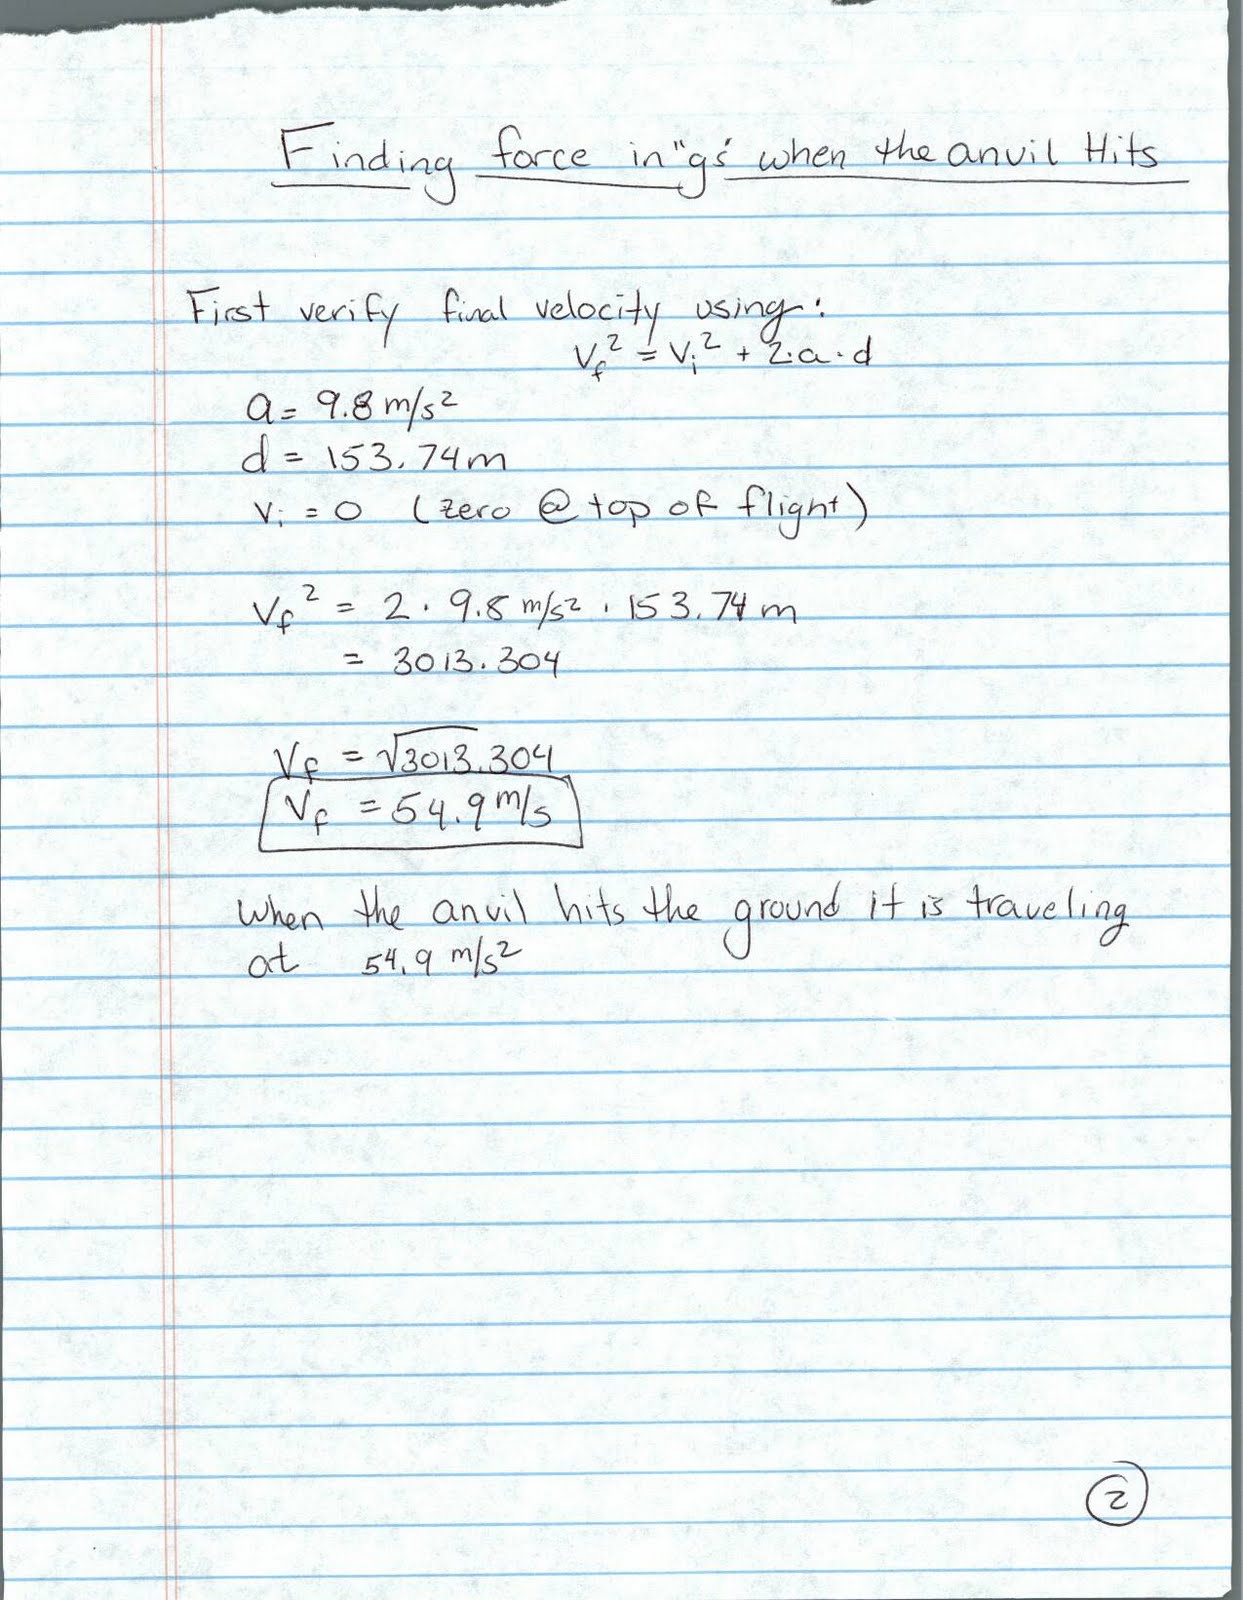 Finding force in "g's" when the anvil Hits
First verify final velocity using:
Vf² = Vi² + 2·a·d
a = 9.8 m/s²
d = 153.74m
Vi = 0 (zero @ top of flight)
Vf² = 2 · 9.8 m/s² · 153.74 m
= 3013.304
Vf = √3013.304
Vf = 54.9 m/s
when the anvil hits the ground it is traveling
at 54.9 m/s²
2